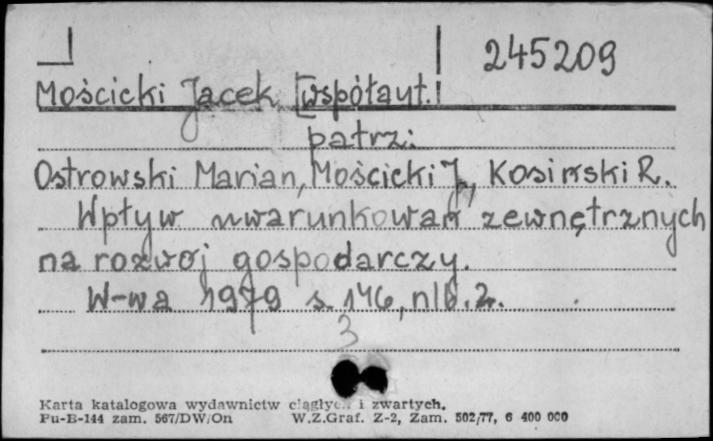 245209
Mościcki Jacek [współaut.]
patrz:
Ostrowski Marian, Mościcki J., Kosiński R.
Wpływ uwarunkowań zewnętrznych
na rozwój gospodarczy.
W-wa 1979 s. 146, nlb. 2.
3
Karta katalogowa wydawnictw ciągłych i zwartych.
Pu-B-144 zam. 567/DW/On W.Z.Graf. Z-2, Zam. 502/77, 6 400 000